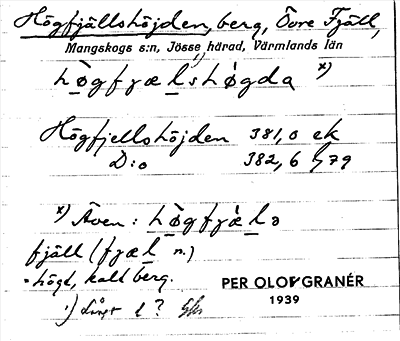 Högfjällshöjden, berg, Övre Fjäll,
Mangskogs s:n, Jösse härad, Värmlands län
hògfjælshȯ́gda x)
Högfjellshöjden 381,0 ek
D:o 382,6 h79
x) Även: hògfjælə
fjäll (fjæl n.)
= högt, kalt berg.
1) långt l?
PER OLOF GRANÉR
1939